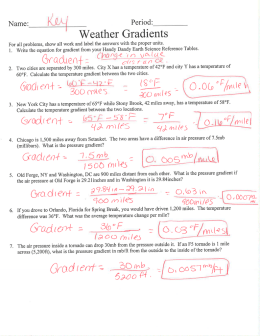 Name: Key Period:
Weather Gradients
For all problems, show all work and label the answers with the proper units.
1. Write the equation for gradient from your Handy Dandy Earth Science Reference Tables.
Gradient = change in value
distance
2. Two cities are separated by 300 miles. City X has a temperature of 42°F and city Y has a temperature of
60°F. Calculate the temperature gradient between the two cities.
Gradient = 60°F-42°F = 18°F
300 miles 300 miles 0.06°F/mile
3. New York City has a temperature of 65°F while Stony Brook, 42 miles away, has a temperature of 58°F.
Calculate the temperature gradient between the two locations.
Gradient = 65°F-58°F = 7°F
42 miles 42 miles
4. Chicago is 1,500 miles away from Setauket. The two areas have a difference in air pressure of 7.5mb
(millibars). What is the pressure gradient?
Gradient = 7.5mb
1500 miles 0.005mb/mile
5. Old Forge, NY and Washington, DC are 900 miles distant from each other. What is the pressure gradient if
the air pressure at Old Forge is 29.21inches and in Washington it is 29.84inches?
Gradient = 29.84in - 29.21in = 0.63in
900 miles 900 miles
6. If you drove to Orlando, Florida for Spring Break, you would have driven 1,200 miles. The temperature
difference was 36°F. What was the average temperature change per mile?
Gradient = 36°F
1200 miles 0.03°F/mile
7. The air pressure inside a tornado can drop 30mb from the pressure outside it. If an F5 tornado is 1 mile
across (5,200ft), what is the pressure gradient in mb/ft from the outside to the inside of the tornado?
Gradient = 30mb
5200ft. 0.0057mb/ft